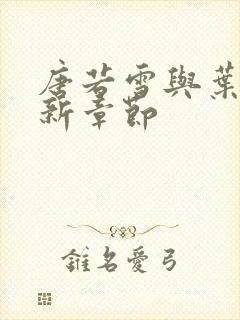 唐若雪與葉
新章節
錐名愛弓